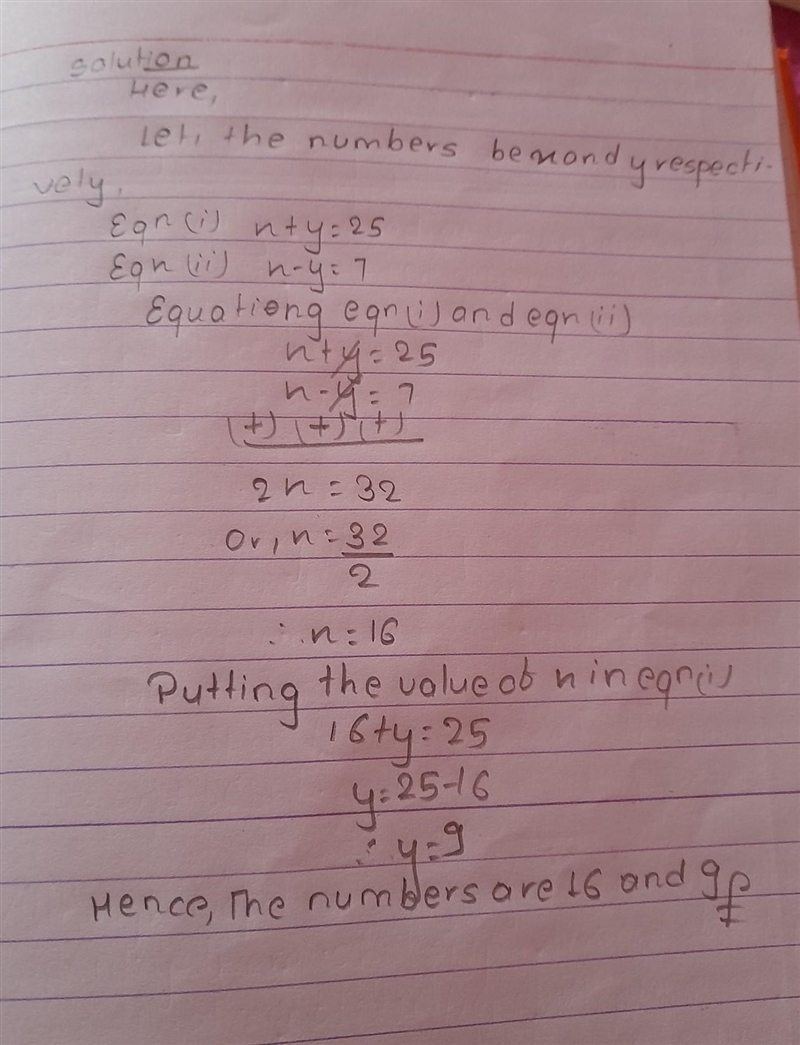 Solution
Here,
Let, the numbers be x and y respecti-
vely,
Eqn (i) x+y=25
Eqn (ii) x-y=7
Equationg eqn (i) and eqn (ii)
x+y=25
x-y=7
(+) (+) (+)
2x=32
Or, x=32/2
∴x=16
Putting the value of x in eqn (i)
16+y=25
y=25-16
∴y=9
Hence, The numbers are 16 and 9